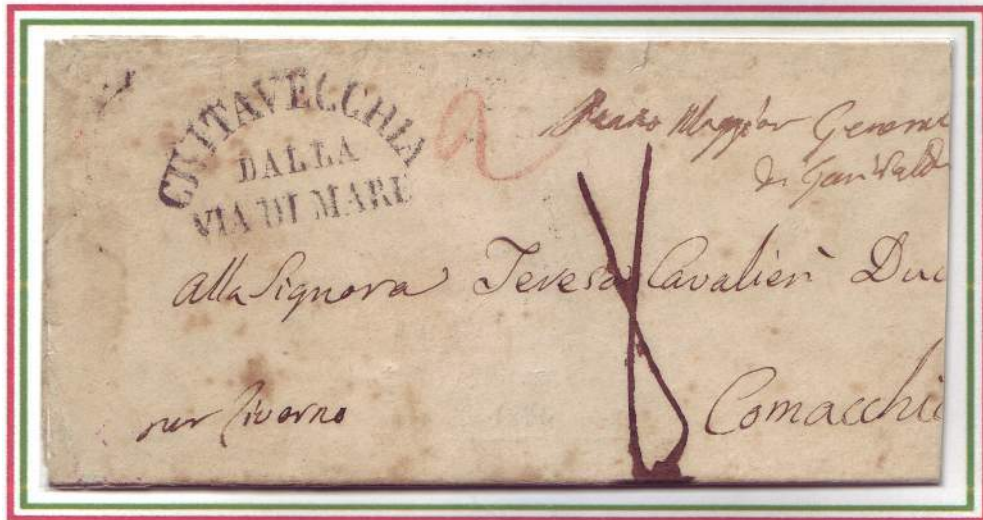 CIVITAVECCHIA
DALLA
VIA DI MARE
Maggior General
di Garibald
alla Signora Teresa Cavalieri Duc
per Livorno
Comacchi